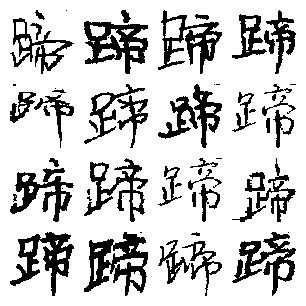 蹄蹄蹄蹄
蹄蹄蹄蹄
蹄蹄蹄蹄
蹄蹄蹄蹄